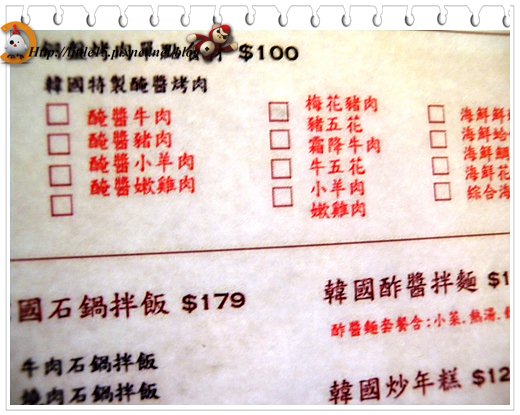 $100
韓國特製醃醬烤肉
醃醬牛肉
醃醬豬肉
醃醬小羊肉
醃醬嫩雞肉
梅花豬肉
豬五花
霜降牛肉
牛五花
小羊肉
嫩雞肉
海鮮
海鮮
海鮮
海鮮花
綜合海
國石鍋拌飯 $179
牛肉石鍋拌飯
燒肉石鍋拌飯
韓國酢醬拌麵 $1
酢醬麵套餐合:小菜.熱湯.
韓國炒年糕 $12